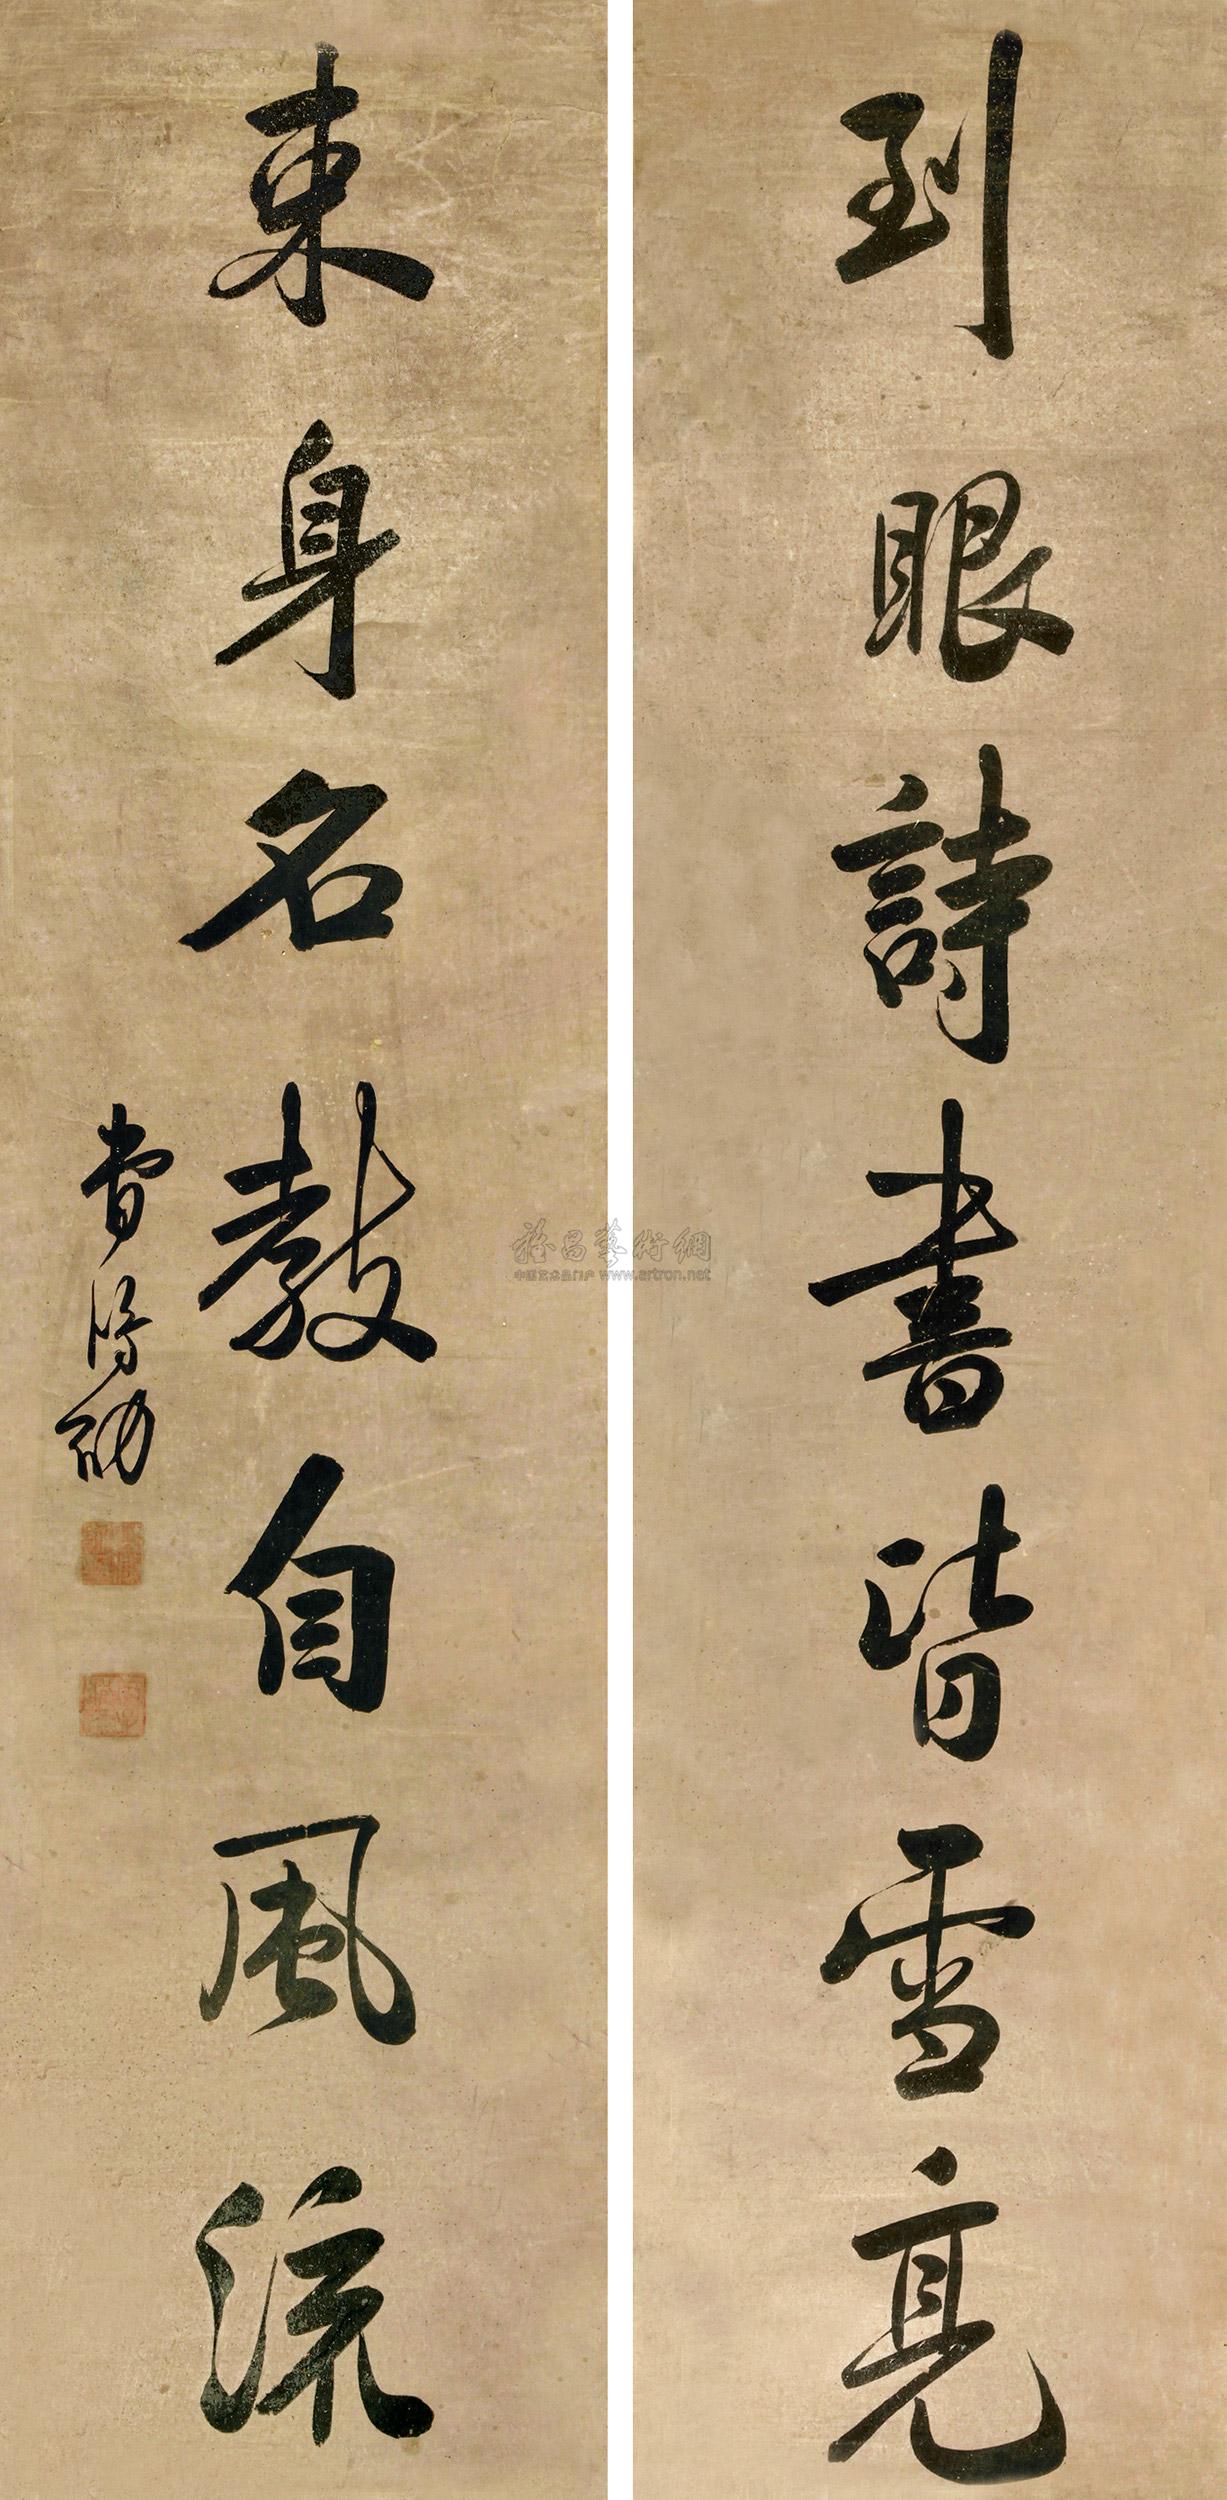 到眼詩書皆雪亮
束身名教自風流
曹鴻勛
雅昌藝術網
中国艺术品门户 www.artron.net